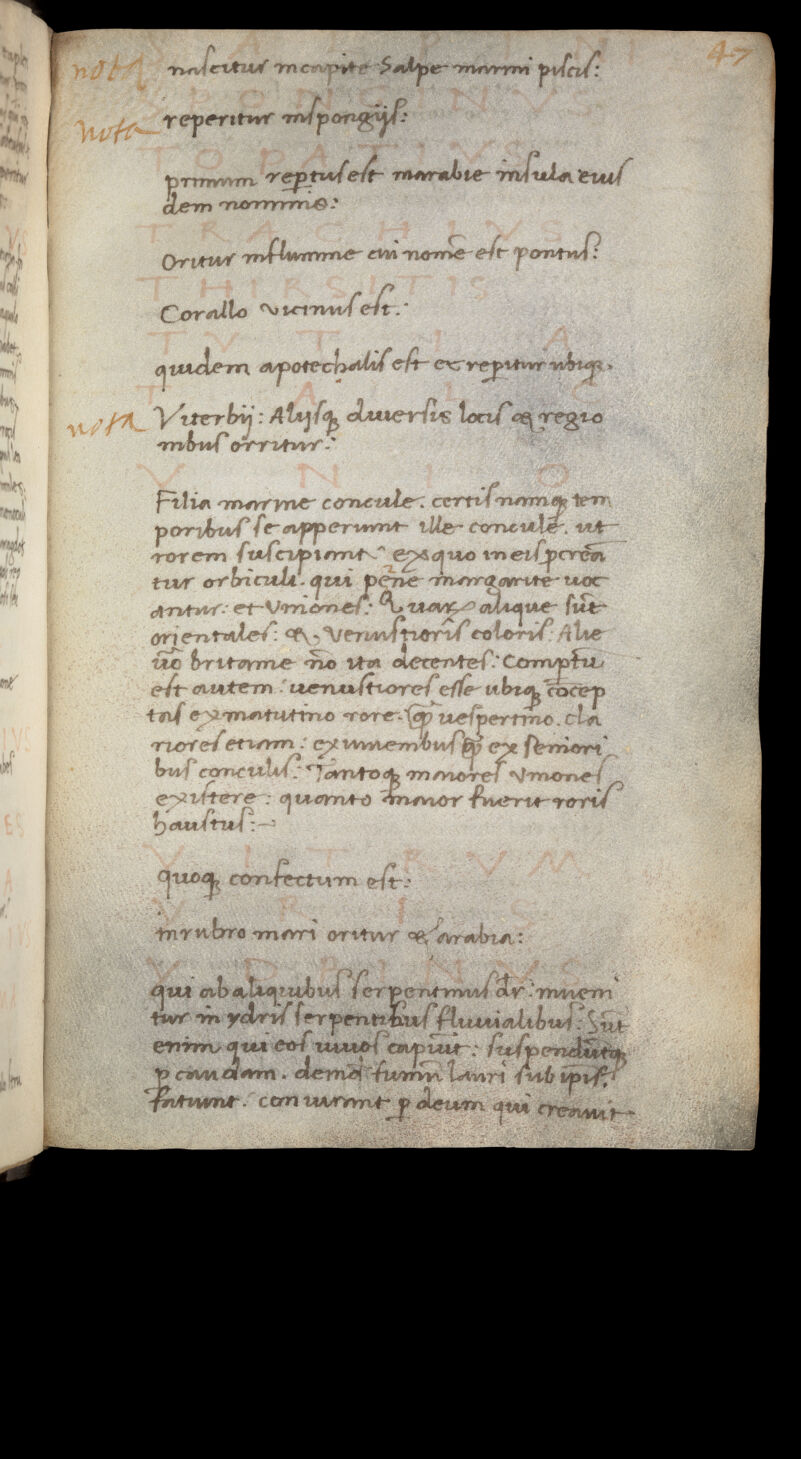 47
nota
nascitur in capite Salpe marini piscis:
SPONGINVS
nota
reperitur in spongijs:
TOPATIVS
primum reptus est in arabie insula eius
dem nominis:
TRACHIVS
Oritur in flumine cui nomē est pontus:
THIRSITIS
Corallo vicinus est:
TVTHIA
quidem apotechalis est et reperitur ubiq.
TALC
nota
Viterbij: Alijsq diuersis locis & regio
nibus orritur:
VNIO
Filia marine concule. certis namq tem
poribus se apperiunt ille concule. ut
rorem suscipiant: ex quo in eis pcreā
tur orbiculi. qui pene margarite uoc
antur: et Vniones: Quarum alique sūt
orientales: & venustioris coloris: Alie
uō britanie nō ita decentes: Comptū
est autem: uenustiores esse ubiq cōcep
tas ex matutino rore: q uespertino. cla
riores etiam: ex iuuenibus q ex seniori
bus conculis: Tantoq maiores vniones
existere: quanto maior fuerit roris
haustus:
VITRVM
quoq confectum est:
VRIS
in rubro mari oritur & arabia:
VDRINVS
qui ab aliquibus serpentinus dr: inueni
tur in ydris serpentibus fluuialibus: Sūt
enim qui eos uiuos capiūt: suspendūtq
p caudam. demq fumū lauri sub ipis
fatiunt: coniurant p deum qui creauit